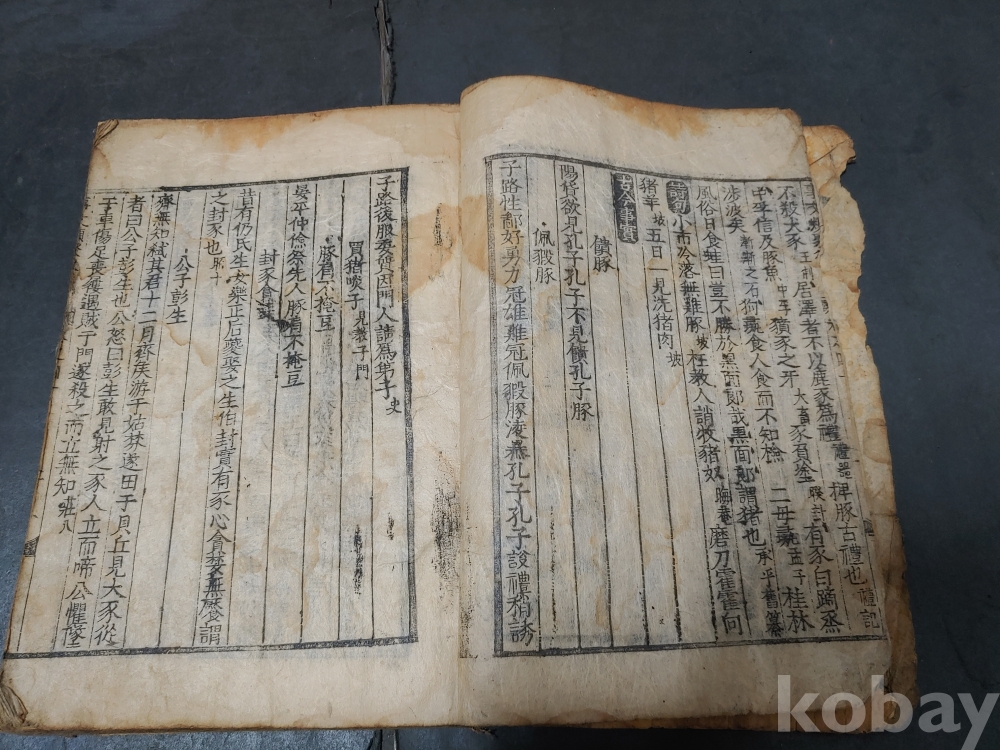 稗豚古禮也禮記
不殺大豕王制居澤者不以鹿豕為禮禮器
中孚信及豚魚中孚豶豕之牙大畜豕負塗睽卦有豕白蹢烝
涉波矣漸漸之石狗彘食人食而不知檢二母彘孟子桂林
風俗日食蛙曰豈不勝於黑面郎哉黑面郎謂猪也承平舊纂
小市冷落無雞豚坡枉教人誚牧猪奴晦菴磨刀霍霍向
猪羊坡五日一見洗猪肉坡
古今事實
饋豚
陽貨欲見孔子孔子不見饋孔子豚
佩豭豚
子路性鄙好勇力冠雄雞冠佩豭豚凌暴孔子孔子設禮稍誘
子路後服委質因門人請為弟子史
買猪啖子見教子門
豚肩不掩豆
晏平仲儉祭先人豚肩不掩豆
封豕貪婪
昔有仍氏生女樂正后夔娶之生伯封實有豕心貪婪無饜謂
之封豕也昭十
公子彭生
齊無知弒其君十二月齊侯游于姑棼遂田于貝丘見大豕從
者曰公子彭生也公怒曰彭生敢見射之豕人立而啼公懼墜
于車傷足喪屨遇賊于門遂殺之而立無知莊八
kobay